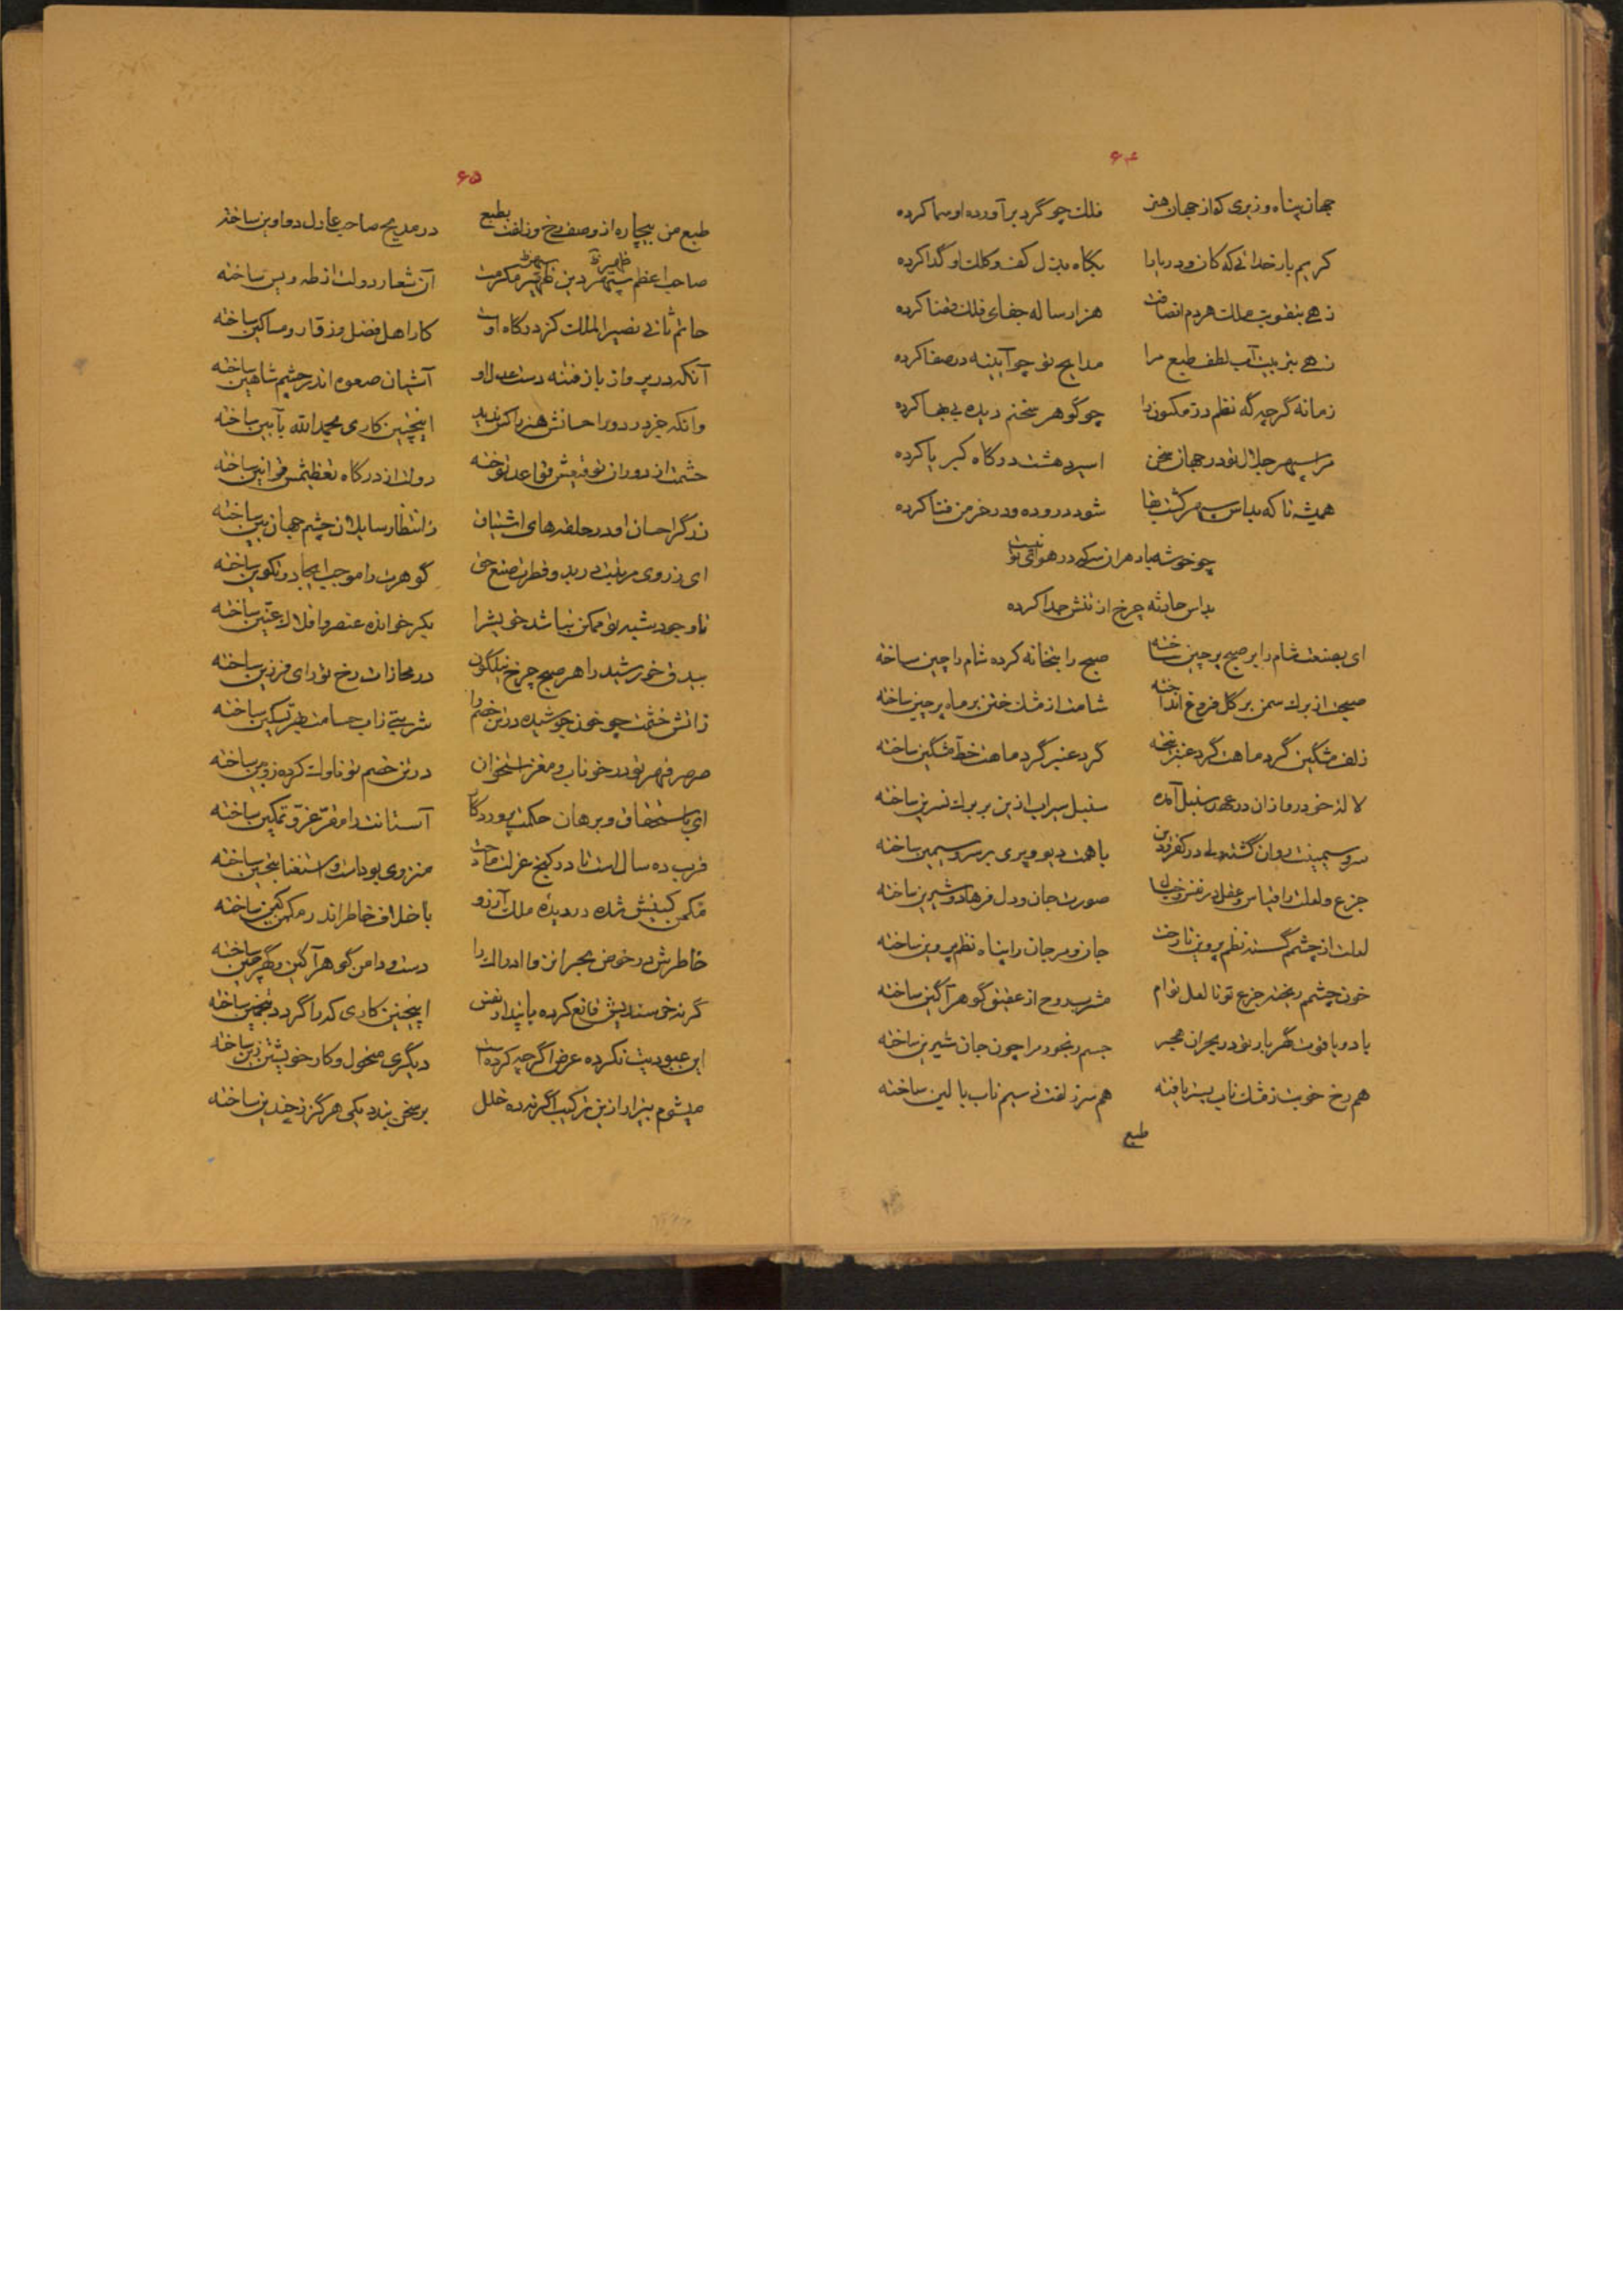 ۶۴
جهان پناه وزیری که از جهان هنر فلک چو گرد برآورده او سما کرده
کریم بار خدائی که کان و دریا را بگاه بذل کف و کلک او گدا کرده
زهی بتقویت ملک هر دم انصافت هزار ساله جفای فلک قضا کرده
زهی بتربیت آب لطف طبع مرا مدایح تو چو آیینه در صفا کرده
زمانه گرچه گه نظم در مکنون را چو گوهر سخنم دیده بی بها کرده
مرا سپهر جلال تو در جهان سخن اسیر دهشت درگاه کبریا کرده
همیشه تا که بداس سپهر کشت بقا شود دروده و در خرمن فنا کرده
چو خوشه باد هران سر که در هوای تو نیست
بداس حادثه چرخ از تنش جدا کرده
ای بصنعت شام را بر صبح پرچین ساخته صبح را بتخانه کرده شام را چین ساخته
صبحت از برک سمن بر گل فروغ انداخته شامت از مشک ختن بر ماه پرچین ساخته
زلف مشگین گرد ماهت گرد عنبر بیخته گرد عنبر گرد ماهت خط مشگین ساخته
لاله خودرو از ان در عهد سنبل آمده سنبل سیراب ازین بر برک نسرین ساخته
سرو سیمینت روان گشته ولی در کفر و دین با همت دیو و پری بر سرو سیمین ساخته
جزع و لعلت را قیاس عقل در نقش خیال صورت جان و دل فرهاد و شیرین ساخته
لعلت از چشمم گسسته نظم پروین تا رخت جان و مرجان را پناه نظم پروین ساخته
خون چشمم ریخته جزع تو تا لعل توام مشرب روح از عقیق گوهر آگین ساخته
یا دو یاقوت گهربار تو در بحران هجر جسم رنجور مرا چون جان شیرین ساخته
هم رخ خوبت ز مشک ناب بستر یافته هم سر زلفت ز سیم ناب بالین ساخته
طبع
۶۵
طبع من بیچاره از وصف رخ و زلفت بطبع در مدیح صاحب عادل دواوین ساخته
صاحب اعظم سپهر دین ظهیر مکرمت آن شعار دولت از طه و یس ساخته
حاتم ثانی نصیر الملک کز درگاه اوست کار اهل فضل و زقار و مساکین ساخته
آنکه در پرواز باز فتنه دست عدل او آشیان صعوه اندر چشم شاهین ساخته
وانکه جز در دور احسانش هنر را کس ندید اینچنین کاری بحمدالله بآیین ساخته
حشمت از دوران توقیعش قواعد توخته دولت از درگاه تعظیمش قوانین ساخته
زرگر احسان او در حلقه های اشتیاق ز انتظار سایلان چشم جهان بین ساخته
ای ز روی مرتبت در بدو فطرت صنع حق گوهرت را موجب ایجاد و تکوین ساخته
تا وجودت شبیه تو ممکن نباشد خویشرا بکر خوانده عنصر و افلاک عنین ساخته
بیدق خورشید را هر صبح چرخ نیلگون در مجازات رخ تو رای فرزین ساخته
ز آتش خشمت چو خون جوشیده در تن خصم را شربتی ز آب حسامت بهر تسکین ساخته
صرصر قهر تو در خوناب و مغز استخوان در تن خصم تو ناوک کرده زوبین ساخته
ای باستحقاق و برهان حکمت پروردگار آستانت را مقر عز و تمکین ساخته
قرب ده سال است تا در کنج عزلت مادحت منزوی بوداست و استغنا بتخمین ساخته
ممکن کینش شده در دیده ملک آرزو با خلاف خاطر اندر مکمن کین ساخته
خاطرش در خوض بحر انزوا ادراک را دست و دامن گوهر آگین و گهرچین ساخته
گرنه خرسندیش قانع کرده با پندار نفس اینچنین کاری کرا گردد بتخمین ساخته
این عبودیت نکرده عرض اگرچه کرده است دیگری منحول و کار خویشتن زین ساخته
میشوم بیزار ازین ترکیب اگر نبرده خلل بر سخن بندد یکی هرگز نه چندین ساخته